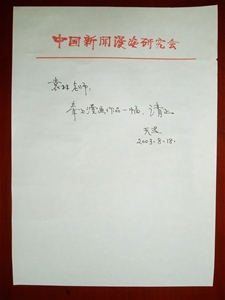 中国新闻漫画研究会
老师:
奉上漫画作品一幅,请正。
2003.8.18.